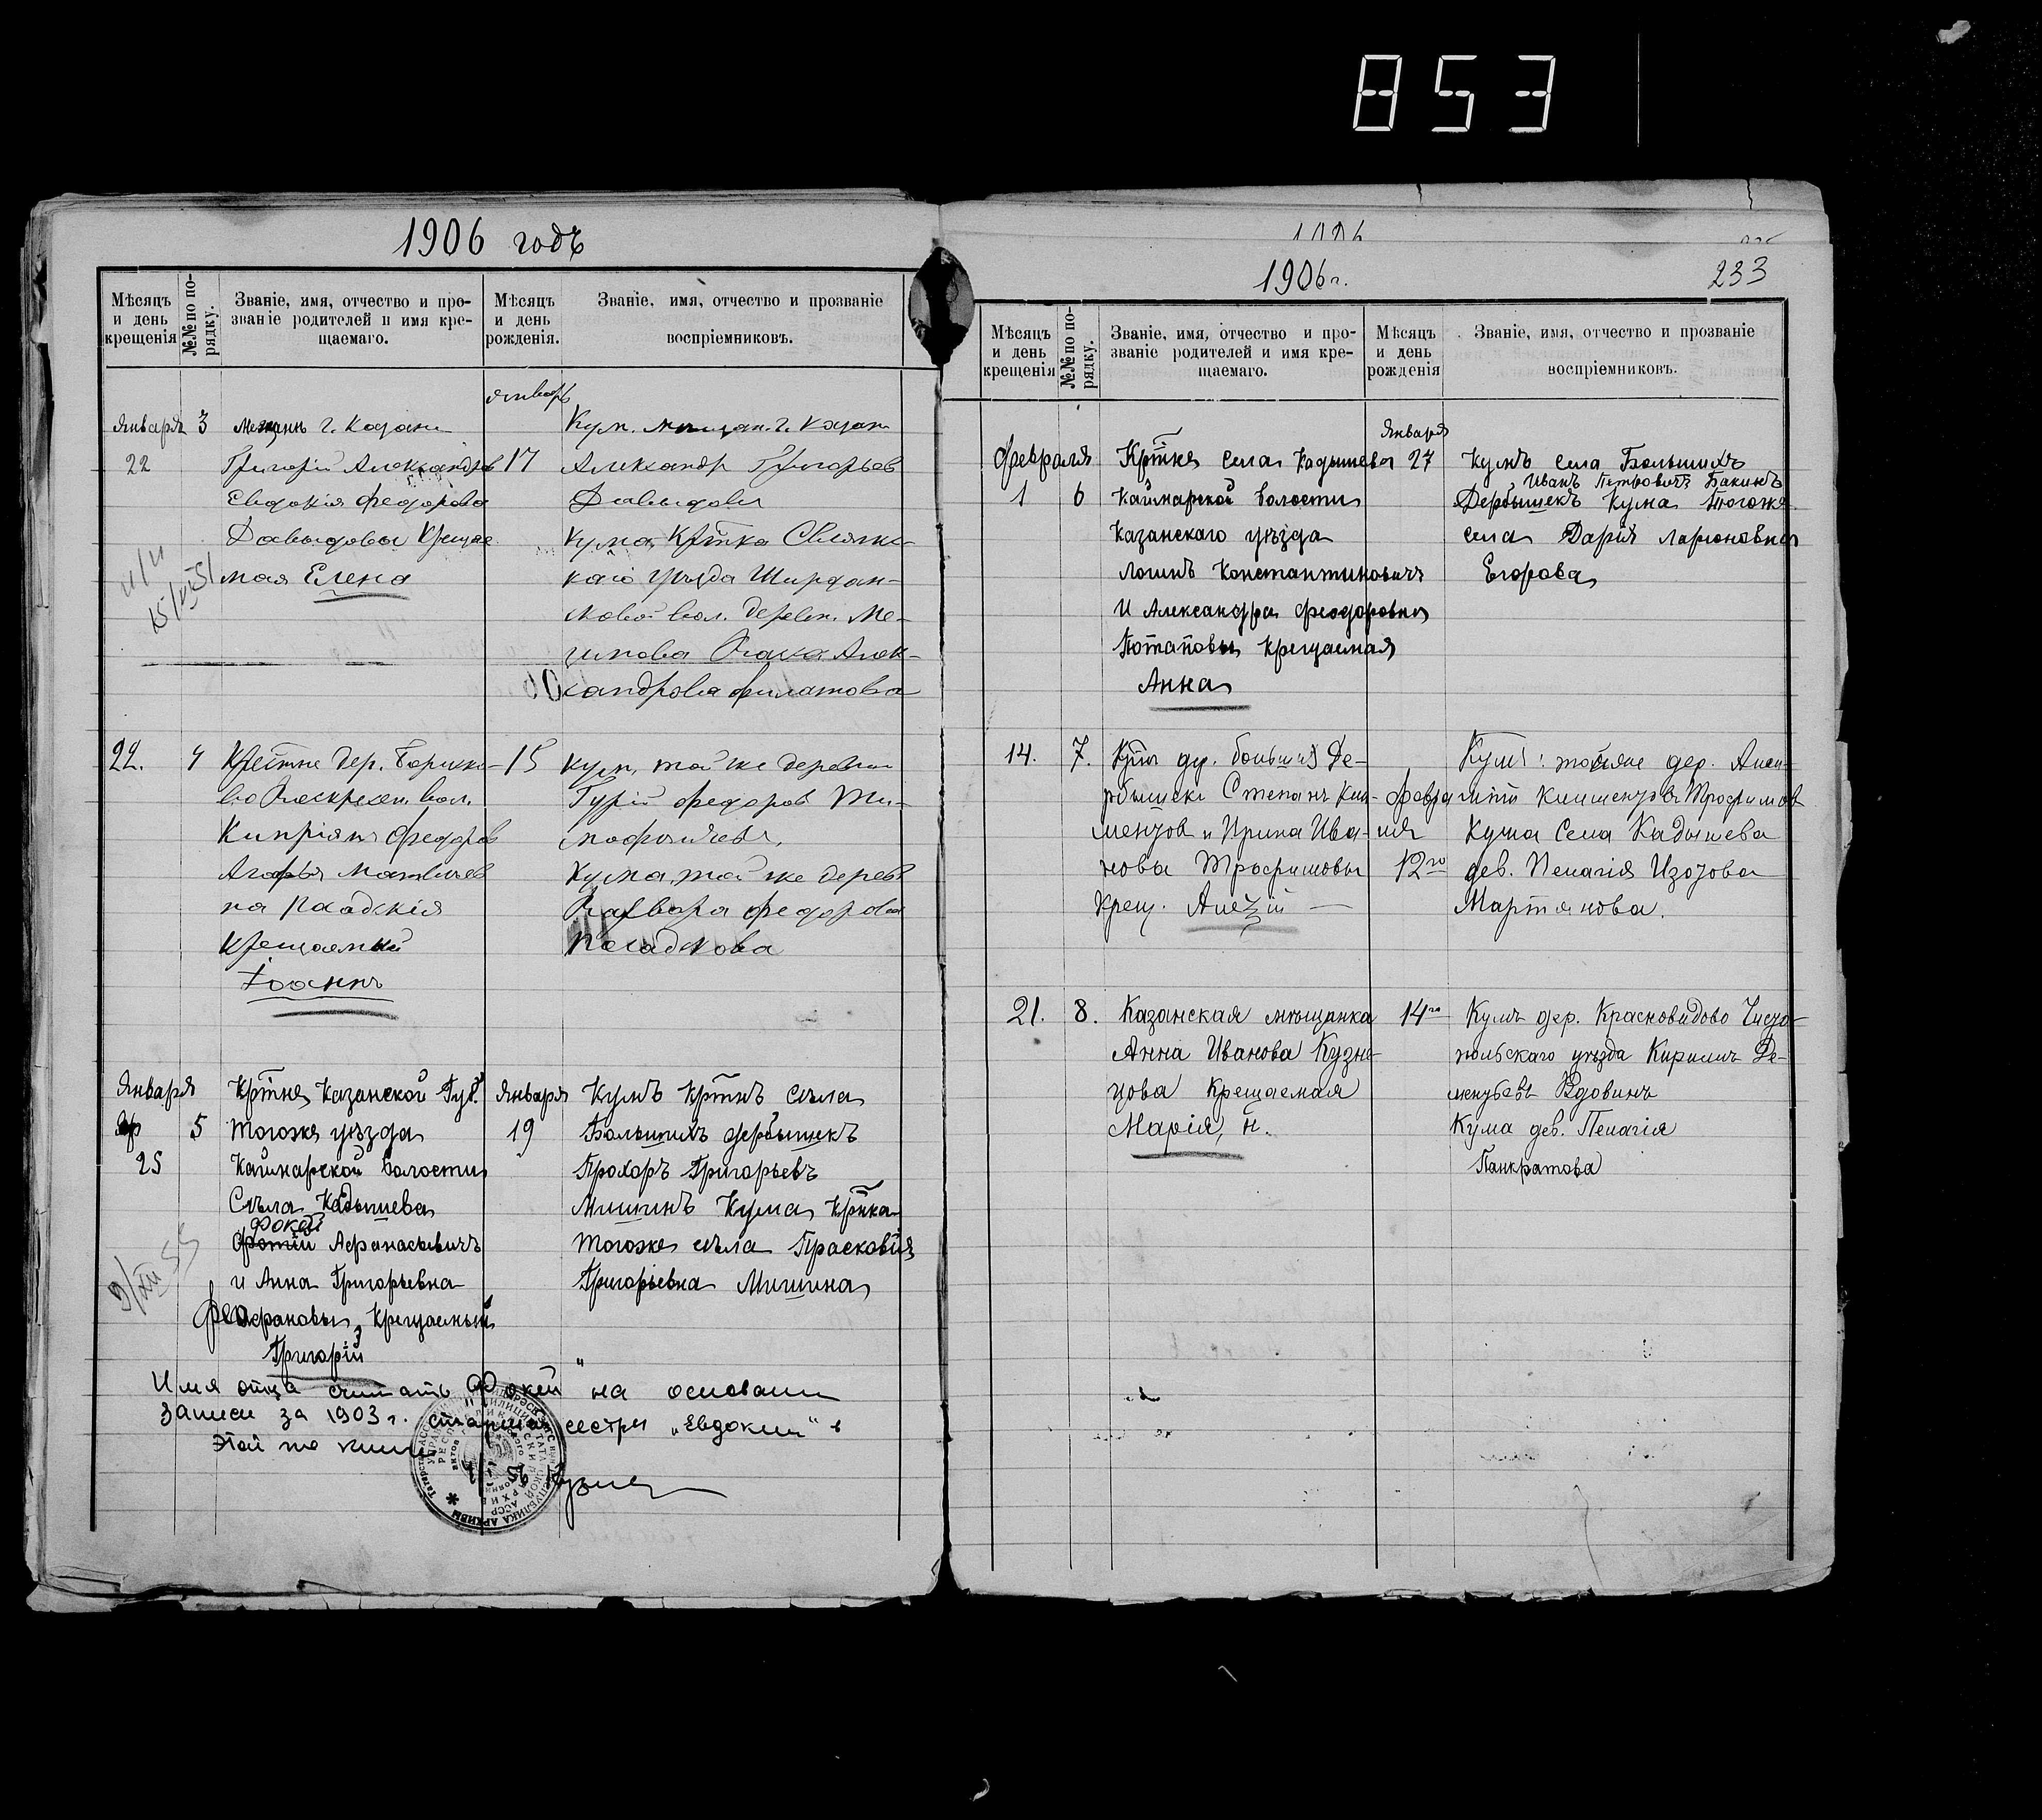 853
1906 годъ
Мѣсяцъ и день крещенія
№№ по порядку.
Званіе, имя, отчество и про-
званіе родителей и имя кре-
щаемаго.
Мѣсяцъ и день рожденія.
Званіе, имя, отчество и прозваніе
воспріемниковъ.
январь
Января 3 Мещанн г. Казани
22
Григорій Александров 17
Евдокія Федорова
Давыдовы Креще
мая Елена
15/VI 51
Кум. мещан. г. Казан
Александр Григорьев
Давыдовъ
Кума Кртка Свіяжс-
каго Уѣзда Ширдан-
ковой вол. дерев.
Алек-
сандрова Филатова
22. 4 Крестне дер. Борисков-
во Воскресен. вол.
Кипріянъ Федоров
Агафья Матвеев
на
Крещаемый
Іоаннъ
15
Кум. той же деревни
Гурій Федоров Ти-
мофеичевъ.
Кума, той же дерев
Варвара Федорова
Посадскова
Января
5
25
Кртне Казанской Губ.
тогоже уѣзда
Каймарской волости
Сѣла Кадышева
Фокей
Фотій Афанасьевичъ
и Анна Григорьевна
Крещаемый
Григорій
Января
19
Кумъ Кртнъ сѣла
Большихъ дербышекъ
Прохоръ Григорьевъ
Мишинъ Кума Кртка
тогоже сѣла Прасковія
Григорьевна Мишина
9/XII 55
Имя отца считать Фокей на основании
записи за 1903 г. старшей сестры „Евдокии“ в
этой же книги
1906г.
233
Мѣсяцъ и день крещенія
№№ по порядку.
Званіе, имя, отчество и про-
званіе родителей и имя кре-
щаемаго.
Мѣсяцъ и день рожденія
Званіе, имя, отчество и прозваніе
воспріемниковъ.
Февраля
1 6
Кртне села Кадышева
Каймарской волости
Казанскаго уѣзда
Логинъ Константиновичъ
И Александра Феодоровна
Потаповы Крещаемая
Анна
Января
27
Кумъ села Большихъ
Иванъ Петровичъ Бакинъ
Дербышекъ Кума Тогоже
села Дарія Ларионовна
Егорова
14. 7.
Кртн др. большія Де-
рбышки Степанъ Кли-
ментов и Ирина Ива-
нова Трофимовы
Крещ. Алексій
Февра
ля
12го
Кумъ: тойже дер. Алек-
сѣй Климентовъ Трофимов
Кума Села Кадышева
дев. Пелагія Изотова
Мартянова.
21. 8.
Казанская мѣщанка
Анна Иванова Кузне-
цова Крещаемая
Марія, н.
14го
Кумъ дер. Красновидово Чисто-
польскаго уѣзда Кирилъ Де-
ментьевъ Вдовинъ
Кума дев. Пелагія
Панкратова